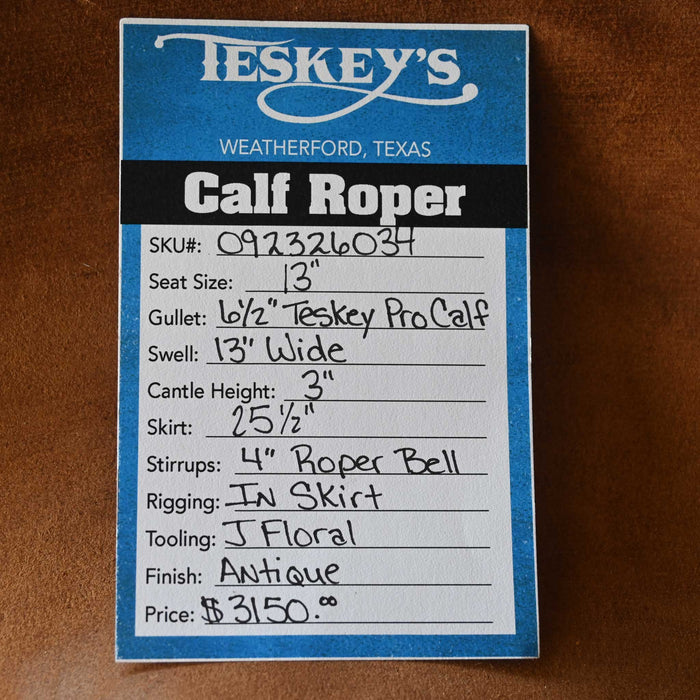 TESKEY'S
WEATHERFORD, TEXAS
Calf Roper
SKU#: 092326034
Seat Size: 13"
Gullet: 6½" Teskey Pro Calf
Swell: 13" Wide
Cantle Height: 3"
Skirt: 25½"
Stirrups: 4" Roper Bell
Rigging: In Skirt
Tooling: J Floral
Finish: Antique
Price: $3150.00